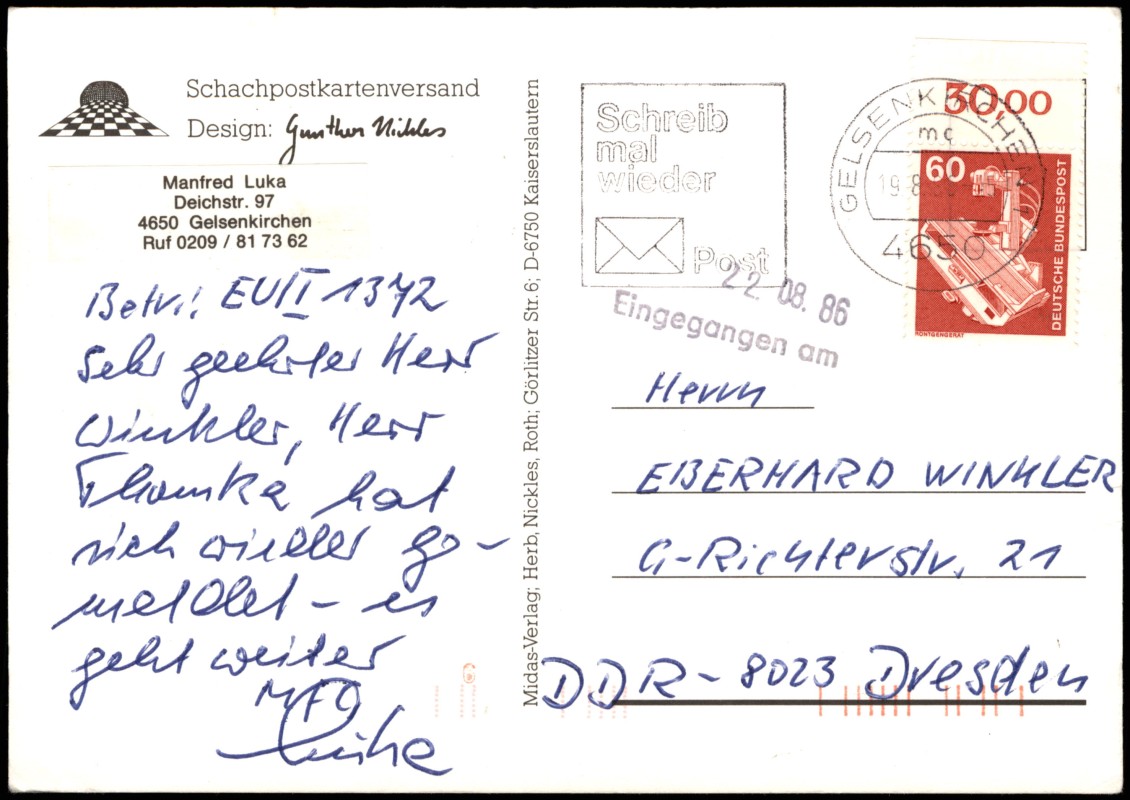 Schachpostkartenversand
Design: Gunther Nickles
Manfred Luka
Deichstr. 97
4650 Gelsenkirchen
Ruf 0209 / 81 73 62
Betr.: EU/II 1372
Sehr geehrter Herr
Winkler, Herr
Thomka hat
sich wieder ge-
meldet - es
geht weiter
MFG
Luka
Midas-Verlag; Herb, Nickles, Roth; Görlitzer Str. 6; D-6750 Kaiserslautern
Schreib
mal
wieder
Post
GELSENKIRCHEN 1
mc
19.-8.
4650
30,00
60
DEUTSCHE BUNDESPOST
RÖNTGENGERÄT
22. 08. 86
Eingegangen am
Herrn
EBERHARD WINKLER
G-Richterstr. 21
DDR - 8023 Dresden
6